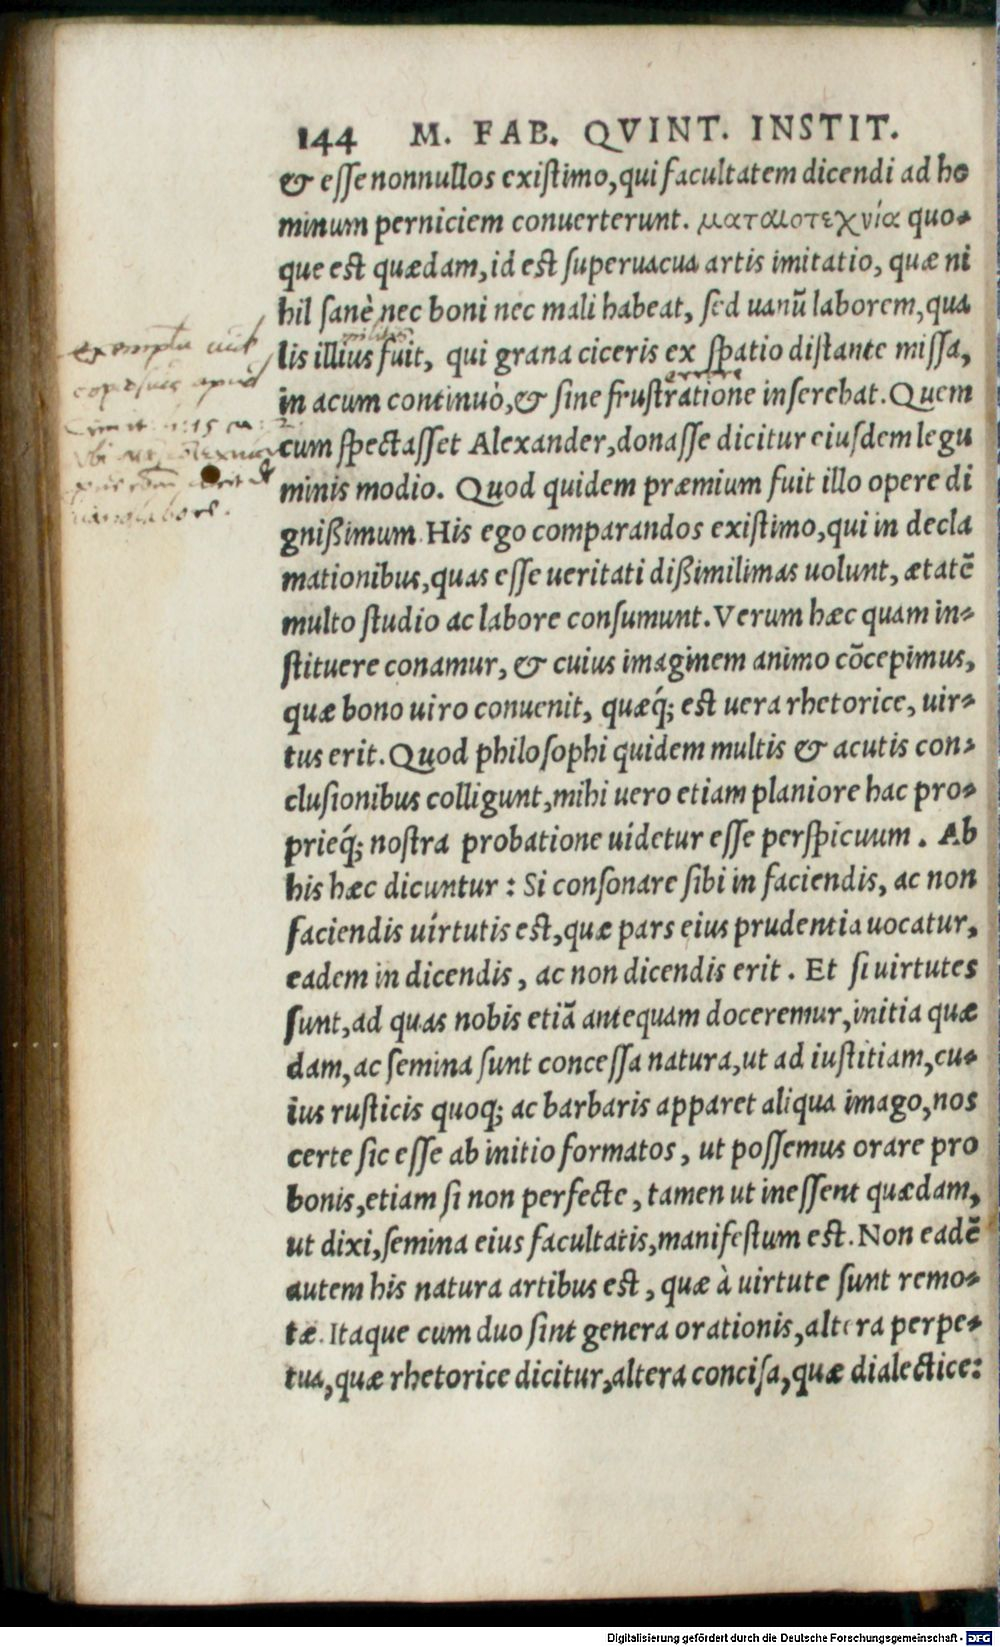 144 M. FAB. QVINT. INSTIT.
& esse nonnullos existimo, qui facultatem dicendi ad ho
minum perniciem conuerterunt. ματαιοτεχνία quo-
que est quædam, id est superuacua artis imitatio, quæ ni
hil sanè nec boni nec mali habeat, sed uanū laborem, qua
lis illius fuit, qui grana ciceris ex spatio distante missa,
in acum continuò, & sine frustratione inserebat. Quem
cum spectasset Alexander, donasse dicitur eiusdem legu
minis modio. Quod quidem præmium fuit illo opere di
gnißimum. His ego comparandos existimo, qui in decla
mationibus, quas esse ueritati dißimilimas uolunt, ætatē
multo studio ac labore consumunt. Verum hæc quam in-
stituere conamur, & cuius imaginem animo cōcepimus,
quæ bono uiro conuenit, quæq́; est uera rhetorice, uir-
tus erit. Quod philosophi quidem multis & acutis con-
clusionibus colligunt, mihi uero etiam planiore hac pro-
prieq́; nostra probatione uidetur esse perspicuum. Ab
his hæc dicuntur: Si consonare sibi in faciendis, ac non
faciendis uirtutis est, quæ pars eius prudentia uocatur,
eadem in dicendis, ac non dicendis erit. Et si uirtutes
sunt, ad quas nobis etiā antequam doceremur, initia quæ
dam, ac semina sunt concessa natura, ut ad iustitiam, cu-
ius rusticis quoq; ac barbaris apparet aliqua imago, nos
certe sic esse ab initio formatos, ut possemus orare pro
bonis, etiam si non perfecte, tamen ut inessent quædam,
ut dixi, semina eius facultatis, manifestum est. Non eadē
autem his natura artibus est, quæ à uirtute sunt remo-
tæ. Itaque cum duo sint genera orationis, altera perpe-
tua, quæ rhetorice dicitur, altera concisa, quæ dialectice:
Digitalisierung gefördert durch die Deutsche Forschungsgemeinschaft - DFG